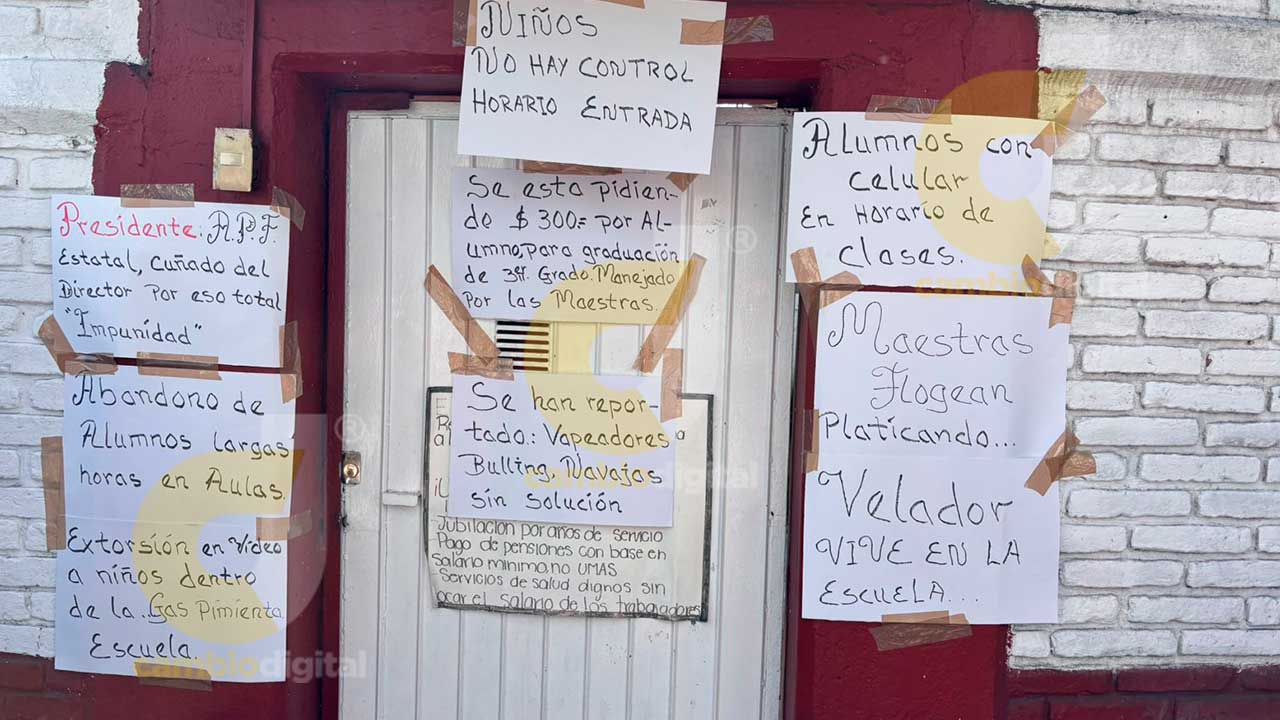 NIÑOS
NO HAY CONTROL
HORARIO ENTRADA
Presidente: A.P.F.
Estatal, cuñado del
Director Por eso total
"Impunidad"
Abandono de
Alumnos largas
horas en Aulas.
Extorsión en Video
a niños dentro
de la Gas Pimienta
Escuela.
Se esta pidien-
do $300= por Al-
umno, para graduación
de 3er. Grado. Manejado
Por las Maestras.
Se han repor-
tado: Vapeadores
Bulling, Navajas
sin solución
Jubilación por años de servicio
Pago de pensiones con base en
salario minimo, no UMAS
Servicios de salud dignos sin
el salario de los trabajadores
Alumnos con
celular
en Horario de
clases.
Maestras
Flogean
Platicando...
Velador
VIVE EN LA
ESCUELA...
cambiodigital
cambiodigital
cambiodigital